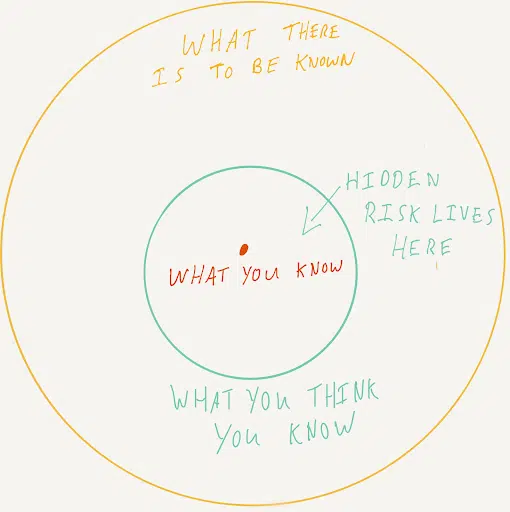 WHAT THERE
IS TO BE KNOWN
HIDDEN
RISK LIVES
HERE
WHAT YOU KNOW
WHAT YOU THINK
YOU KNOW